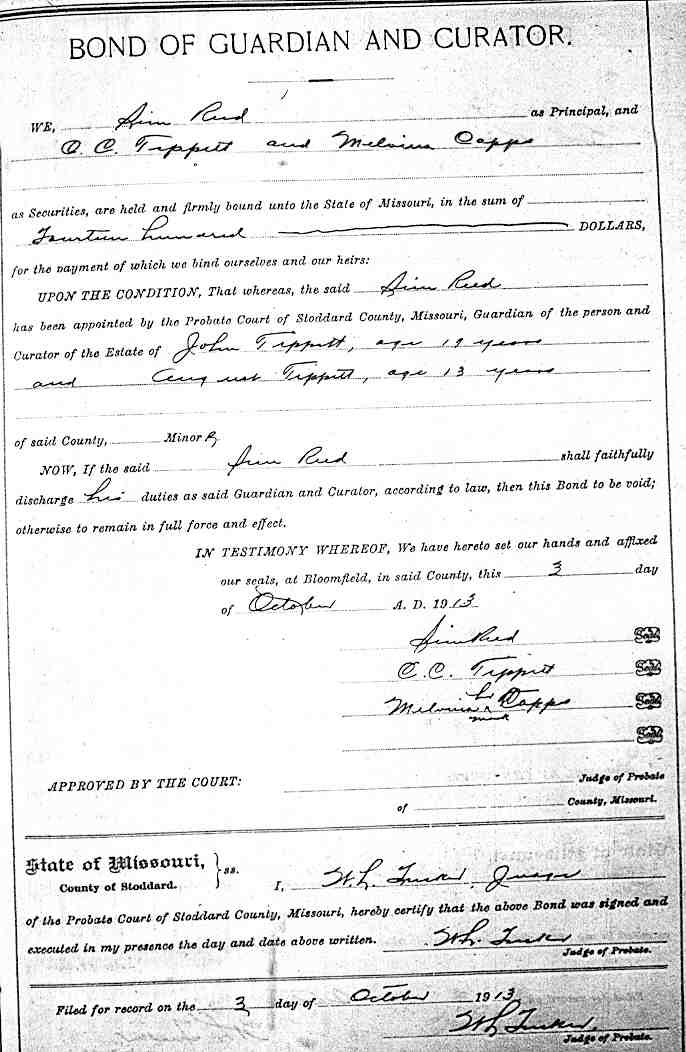 BOND OF GUARDIAN AND CURATOR.
WE, Sim Reed as Principal, and
C. C. Tippitt and Melvina Capps
as Securities, are held and firmly bound unto the State of Missouri, in the sum of
Fourteen hundred DOLLARS,
for the payment of which we bind ourselves and our heirs:
UPON THE CONDITION, That whereas, the said Sim Reed
has been appointed by the Probate Court of Stoddard County, Missouri, Guardian of the person and
Curator of the Estate of John Tippitt, age 19 years
and August Tippitt, age 13 years
of said County, Minors
NOW, If the said Sim Reed shall faithfully
discharge his duties as said Guardian and Curator, according to law, then this Bond to be void;
otherwise to remain in full force and effect.
IN TESTIMONY WHEREOF, We have hereto set our hands and affixed
our seals, at Bloomfield, in said County, this 3 day
of October A. D. 1913
Sim Reed Seal
C. C. Tippitt Seal
her
Melvina x Capps Seal
mark
Seal
APPROVED BY THE COURT: Judge of Probate
of County, Missouri.
State of Missouri, } ss.
County of Stoddard. I, W. L. Tucker, Judge
of the Probate Court of Stoddard County, Missouri, hereby certify that the above Bond was signed and
executed in my presence the day and date above written. W. L. Tucker
Judge of Probate.
Filed for record on the 3 day of October 1913
W L Tucker
Judge of Probate.